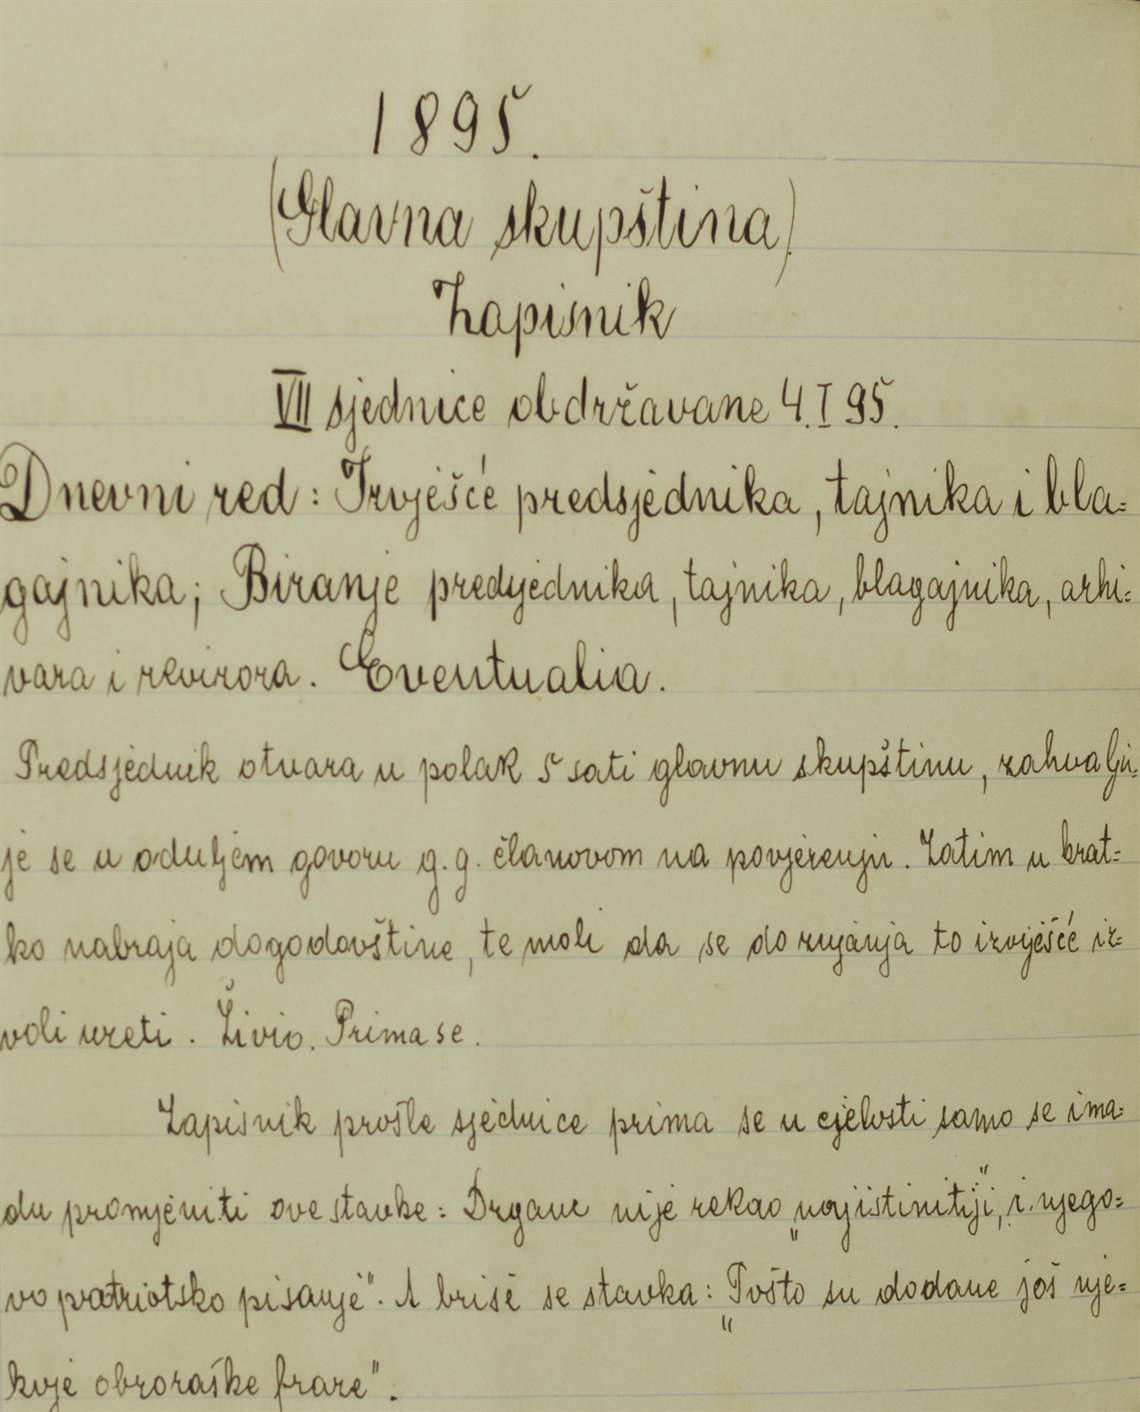 1895.
(Glavna skupština)
Zapisnik
VII sjednice obdržavane 4. I 95.
Dnevni red: Izvješće predsjednika, tajnika i bla=
gajnika; Biranje predsjednika, tajnika, blagajnika, arhi=
vara i revizora. Eventualia.
Predsjednik otvara u polak 5 sati glavnu skupštinu, zahvalju=
je se u oduljem govoru g. g. članovom na povjerenju. Zatim u krat=
ko nabraja dogodovštine, te moli da se do znanja to izvješće iz=
voli uzeti. Živio. Prima se.
Zapisnik prošle sjednice prima se u cjelosti samo se ima=
du promjeniti ove stavke: nije rekao „najistinitiji", i njego=
vo patriotsko pisanje". A briše se stavka: „Pošto su dodane još nje=
koje obzoraške fraze".